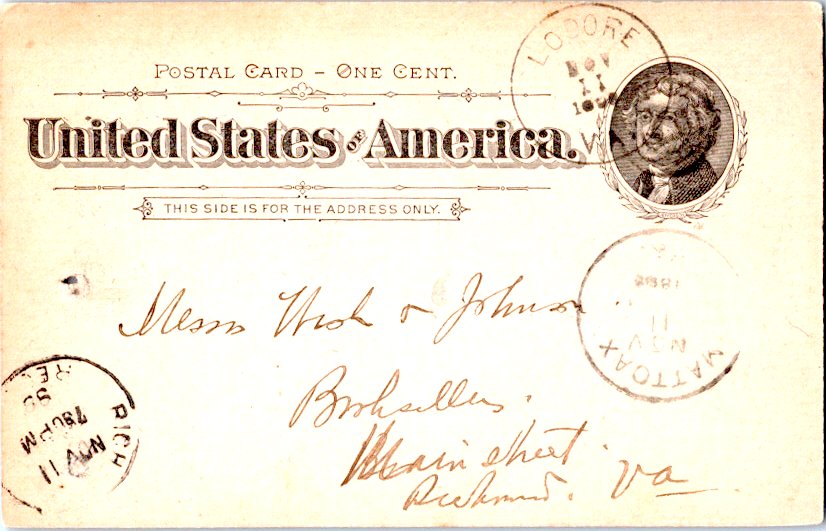 POSTAL CARD – ONE CENT.
United States OF America.
THIS SIDE IS FOR THE ADDRESS ONLY.
LODORE
NOV
11
VA
MATTOAX
NOV
11
Messrs & Johnson
Booksellers.
Main street
Richmond. Va
RICH
NOV 11
730PM
REC